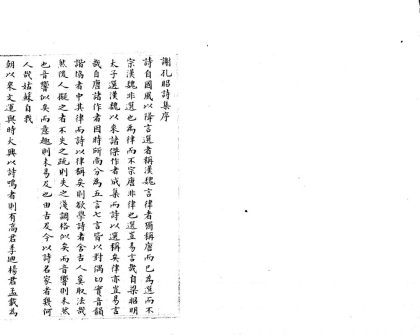 謝孔昭詩集序
詩自國風以降言選者稱漢魏言律者獨稱唐而已為選而不
宗漢魏非選也為律而不宗唐非律也選豈易言哉自梁昭明
太子選漢魏以來諸傑作者成集而詩以選稱矣律亦豈易言
哉自唐諸作者因時所尚分為五言七言皆以對偶切實音韻
諧協者中其律而詩以律稱矣則欲學詩者舍古人奚取法哉
然後人擬之者不失之疏則失之淺調格似矣而音響則未然
也音響似矣而意趣則未易及也由古及今以詩名家者幾何
人哉姑蘇自我
朝以來文運與時大興以詩鳴者則有高君季迪楊君孟載為